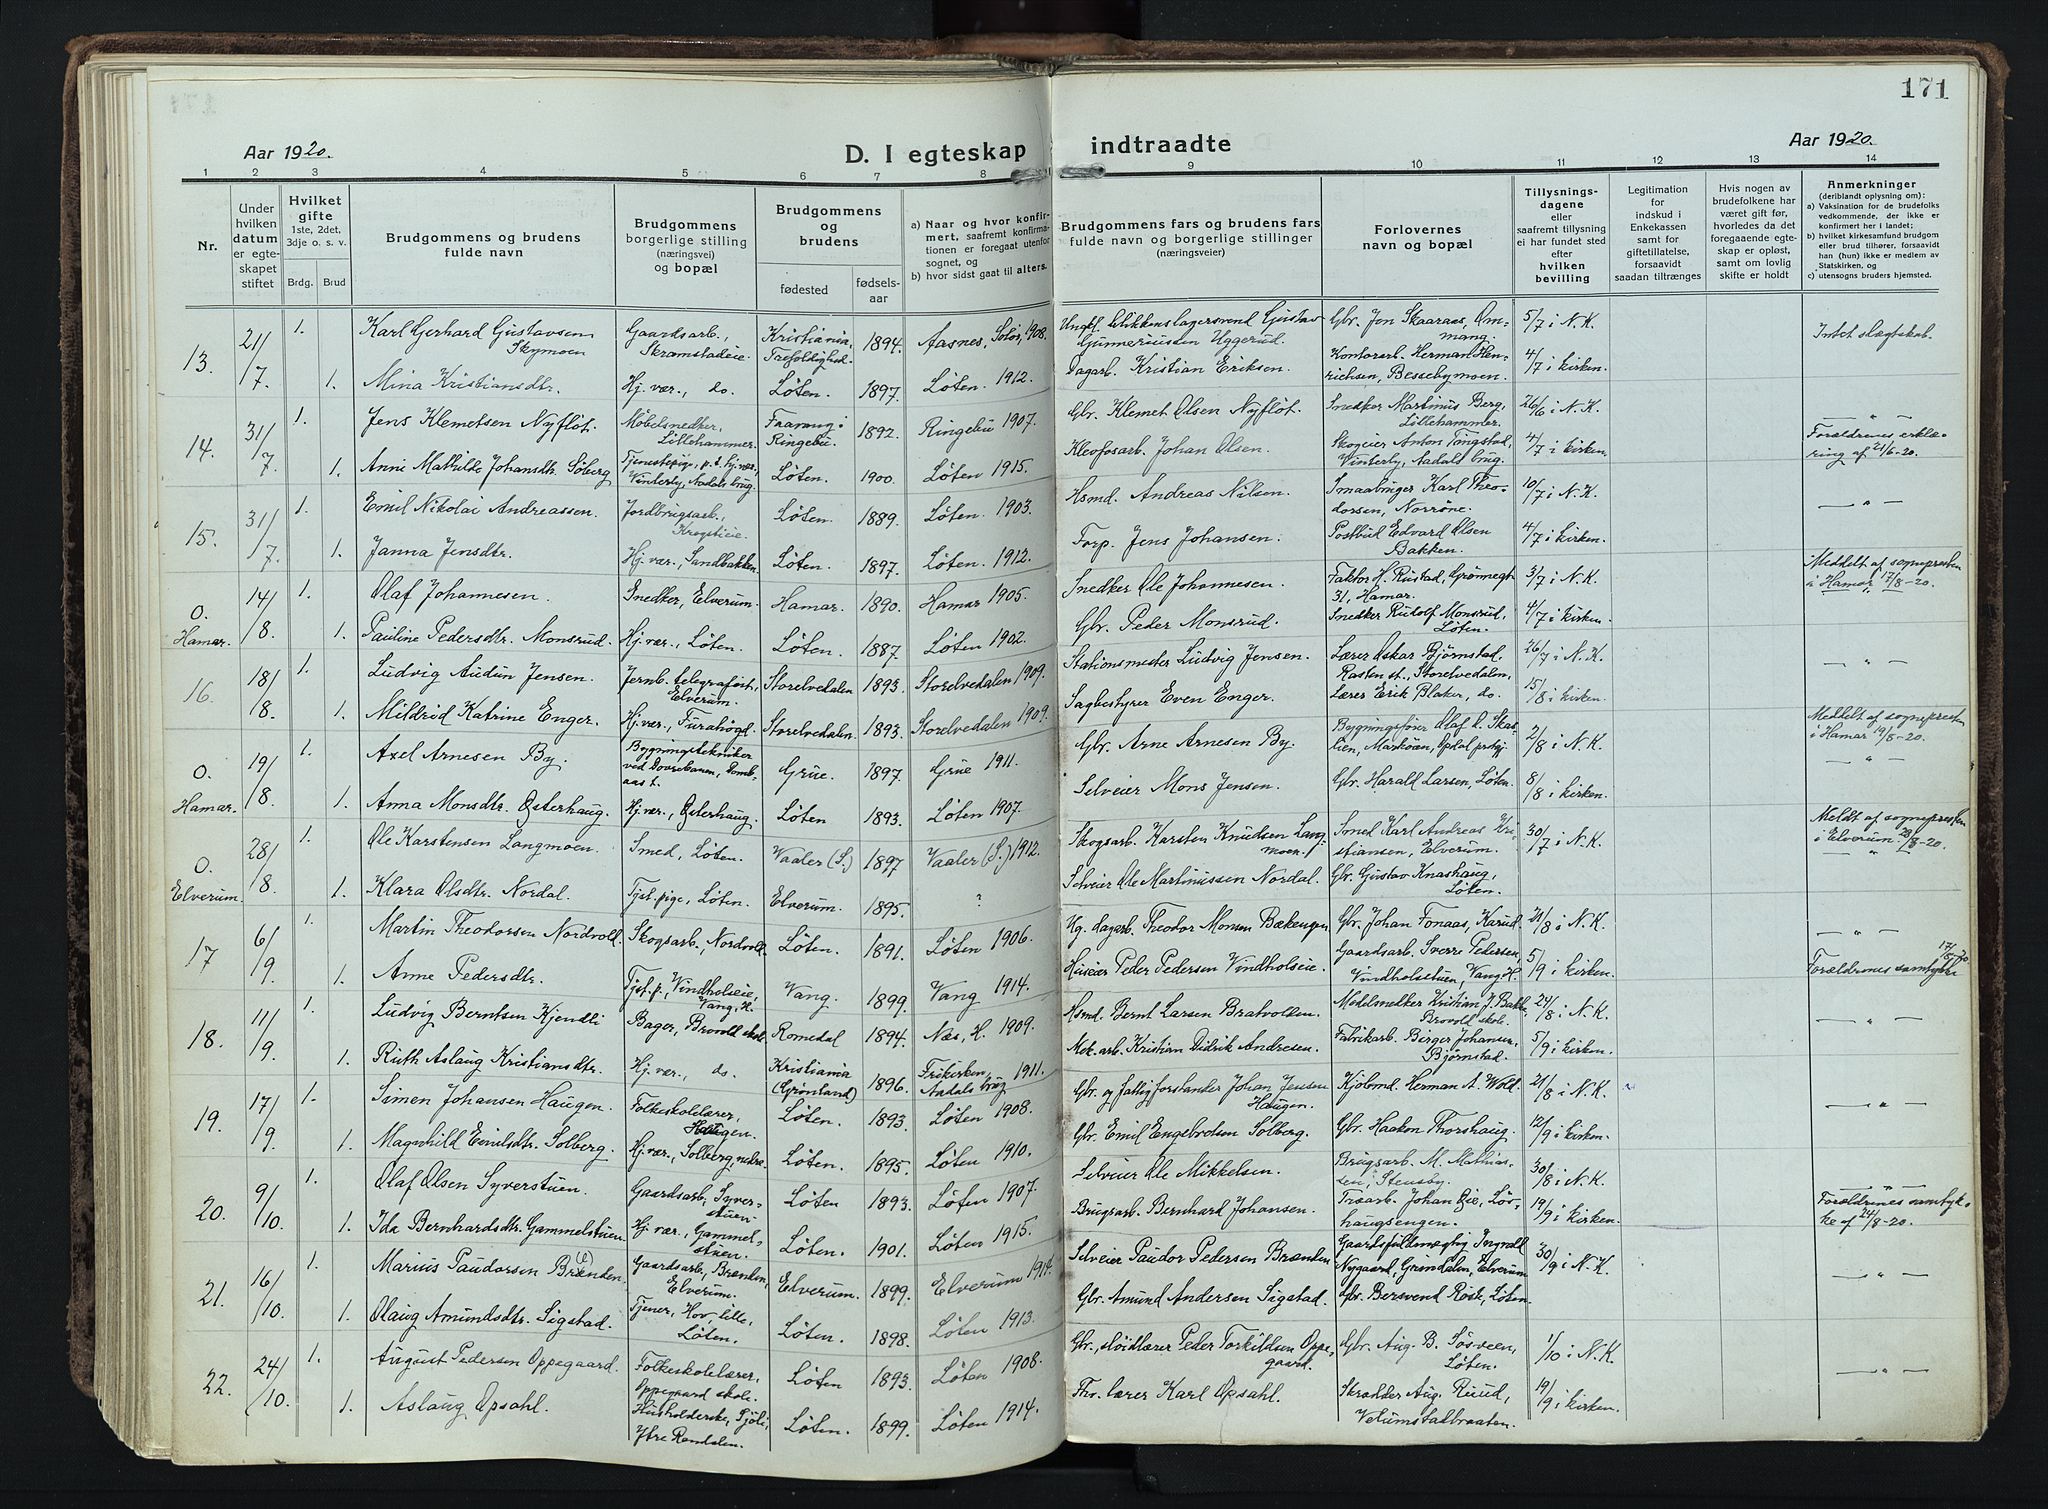 171
Aar 1920.
D. I egteskap indtraadte
Aar 1920.
1 2 3 4 5 6 7 8 9 10 11 12 13 14
Nr.
Under hvilken datum er egteskapet stiftet
Hvilket gifte 1ste, 2det, 3dje o. s. v.
Brdg. Brud
Brudgommens og brudens fulde navn
Brudgommens borgerlige stilling (næringsvei) og bopæl
Brudgommens og brudens
fødested
fødselsaar
a) Naar og hvor konfirmert, saafremt konfirmationen er foregaat utenfor sognet, og
b) hvor sidst gaat til alters.
Brudgommens fars og brudens fars fulde navn og borgerlige stillinger (næringsveier)
Forlovernes navn og bopæl
Tillysningsdagene eller saafremt tillysning ei har fundet sted efter hvilken bevilling
Legitimation for indskud i Enkekassen samt for giftetillatelse, forsaavidt saadan tiltrænges
Hvis nogen av brudefolkene har været gift før, hvorledes da det foregaaende egteskap er opløst, samt om lovlig skifte er holdt
Anmerkninger (deriblandt oplysning om):
a) Vaksination for de brudefolks vedkommende, der ikke er konfirmert her i landet;
b) hvilket kirkesamfund brudgom eller brud tilhører, forsaavidt han (hun) ikke er medlem av Statskirken, og
c) utensogns bruders hjemsted.
13. 21/7 1. Karl Gerhard Gustavsen Skymoen Gaardsarb., Skramstadeie. Kristiania, Trefoldighed. 1894. Aasnes, Solør, 1908. Ungkl. blikkenslagersvend Gustav Gunneriussen Uggerud. Gbr. Jon Skaaraas, Ommang. 5/7 i N.K. Intet slægtskab.
1. Mina Kristiansdtr. Hj. vær., do. Løten. 1897. Løten. 1912. Dagarb. Kristian Eriksen. Kontorarb. Herman Henrichsen, Bessebymoen. 4/7 i kirken.
14. 31/7 1. Jens Klemetsen Nyfløt. Møbelsnedker, Lillehammer. Faavang i Ringebu. 1892. Ringebu 1907. Gbr. Klemet Olsen Nyfløt. Snedker Martinus Berg, Lillehammer. 26/6 i N.K. — " —
1. Anne Mathilde Johansdtr. Søberg Tjenestepige, p.t. hj. vær., Vinterby, Aadals brug. Løten. 1900. Løten 1915. Kleofosarb. Johan Olsen. Skogeier Anton Tingstad, Vinterby, Aadals brug. 4/7 i kirken. Forældrenes erklæring af 21/6-20.
15. 31/7 1. Emil Nikolai Andreassen. Jordbrugsarb., Krogstieie. Løten. 1889. Løten. 1903. Hsmd. Andreas Nilsen. Smaabruger Karl Theodorsen, Norrøne. 10/7 i N.K. — " —
1. Janna Jensdtr. Hj. vær., Sandbakken. Løten. 1897. Løten. 1912. Forp. Jens Johansen. Postbud Edvard Olsen Bakken. 4/7 i kirken.
0. Hamar. 14/8 1. Olaf Johannesen. Snedker, Elverum. Hamar. 1890. Hamar 1905. Snedker Ole Johannesen. Faktor H. Rustad, Grønnegt 31, Hamar. 31/7 i N.K. Meddelt af sognepresten i Hamar 17/8-20.
1. Pauline Pedersdtr. Monsrud. Hj. vær., Løten. Løten. 1887. Løten 1902. Gbr. Peder Monsrud. Snedker Rudolf Monsrud, Løten. 4/7 i kirken.
16. 18/8 1. Ludvig Audun Jensen. Jernb. telegrafist, Elverum. Storelvedalen 1893. Storelvedalen 1909. Stationsmester Ludvig Jensen. Lærer Oskar Bjørnstad, Rasten st., Storelvedalen. 26/7 i N.K. — " —
1. Mildrid Katrine Enger. Hj. vær., Furuhøgd. Storelvedalen. 1893. Storelvedalen 1909. Sagbestyrer Even Enger. Lærer Erik Blaker, do. 15/8 i kirken.
0. Hamar. 19/8 1. Axel Arnesen By. Bygningstekniker ved Dovrebanen, Dombaas t. Grue. 1897. Grue 1911. Gbr. Arne Arnesen By. Bygningsfører Olaf O. Skaslien, Opdal 2/8 i N.K. Meddelt af sognepresten i Hamar 19/8-20. — " —
1. Anna Monsdtr. Østerhaug. Hj. vær., Østerhaug. Løten 1893. Løten 1907. Selveier Mons Jensen. Gbr. Harald Larsen, Løten. 8/8 i kirken.
0. Elverum. 28/8 1. Ole Karstensen Langmoen. Smed, Løten. Vaaler (S.) 1897 Vaaler (S.) 1912. Skogsarb. Karsten Knudsen Langmoen. Smed Karl Andreas Kristiansen, Elverum. 30/7 i N.K. Meldt af sognepresten i Elverum 28/8-20. — " —
1. Klara Olsdtr. Nordal. Tjst. pige, Løten. Elverum. 1895. ? Selveier Ole Martinussen Nordal. Gbr. Gustav Knashaug, Løten.
17. 6/9 1. Martin Theodorsen Nordvoll. Skogsarb., Nordvoll. Løten. 1891. Løten 1906. Ug. dagarb. Theodor Monsen Bækengen Gbr. Johan Fonaas, Karud. 21/8 i N.K. — " —
1. Anne Pedersdtr. Tjst. p., Vindholseie, Vang, H. Vang. 1899. Vang 1914. Huseier Peder Pedersen Vindholseie. Gaardsarb. Sverre Pedersen, Vindholstuen, Vang H. 5/9 i kirken. Forældrenes samtykke 17/8-20
18. 11/9 1. Ludvig Berntsen Kjendli Bager, Brovold skole Romedal 1894. Næs, H. 1909. Hsmd. Bernt Larsen Bratvolden. Møbelsnedker Kristian J. Bakke, Brovold skole. 24/8 i N.K. — " —
1. Ruth Aslaug Kristiansdtr. Hj. vær., do. Kristiania (Grønland) 1896. Frikirken, Aadals brug 1911. Mek. arb. Kristian Didrik Andresen. Fabrikarb. Birger Johansen, Bjørnstad. 5/9 i kirken.
19. 17/9 1. Simen Johansen Haugen. Folkeskolelærer, Haugen. Løten. 1893. Løten 1908. Gbr. og fattigforstander Johan Jensen Haugen. Kjøbmd. Herman A. Wold. 21/8 i N.K. — " —
1. Magnhild Emilsdtr. Solberg. Hj. vær., Solberg, nedre. Løten. 1895. Løten 1910. Gbr. Emil Engebretsen Solberg. Gbr. Haakon Thorshaug. 12/9 i kirken.
20. 9/10. 1. Olaf Olsen Syverstuen. Gaardsarb., Syverstuen. Løten 1893. Løten 1907. Selveier Ole Mikkelsen. Brugsarb. M. Mathiassen, Stensby. 30/8 i N.K. — " —
1. Ida Bernhardsdtr. Gammelstuen. Hj. vær., Gammelstuen. Løten. 1901. Løten 1915. Brugsarb. Bernhard Johansen. Træarb. Johan Øie, Løvhaugsengen. 19/9 i kirken. Forældrenes samtykke af 24/8-20.
21. 16/10. 1. Marius Paudorsen Brænden. (e) Gaardsarb., Brænden, Elverum. Elverum. 1899. Elverum 1914. Selveier Paudor Pedersen Brænden Gaardsfuldmægtig Ingvald Nygaard, Grindalen, Elverum 30/9 i N.K. — " —
1. Olaug Amundsdtr. Sigstad. Tjener, Hov, lille, Løten. Løten. 1898. Løten 1913. Gbr. Amund Andersen Sigstad. Gbr. Bersvend Røste, Løten.
22. 24/10. 1. August Pedersen Oppegaard. Folkeskolelærer, Oppegaard skole. Løten 1893. Løten 1908. Gbr., sløidlærer Peder Torkildsen Oppegaard. Gbr. Aug. B. Søsveen, Løten. 1/10 i N.K. — " —
1. Aslaug Opsahl. Husholderske, Sjøli, Ytre Rendalen. Løten. 1899. Løten 1914. Fhv. lærer Karl Opsahl. Skrædder Aug. Ruud, Vetumstadbraaten. 19/9 i kirken.